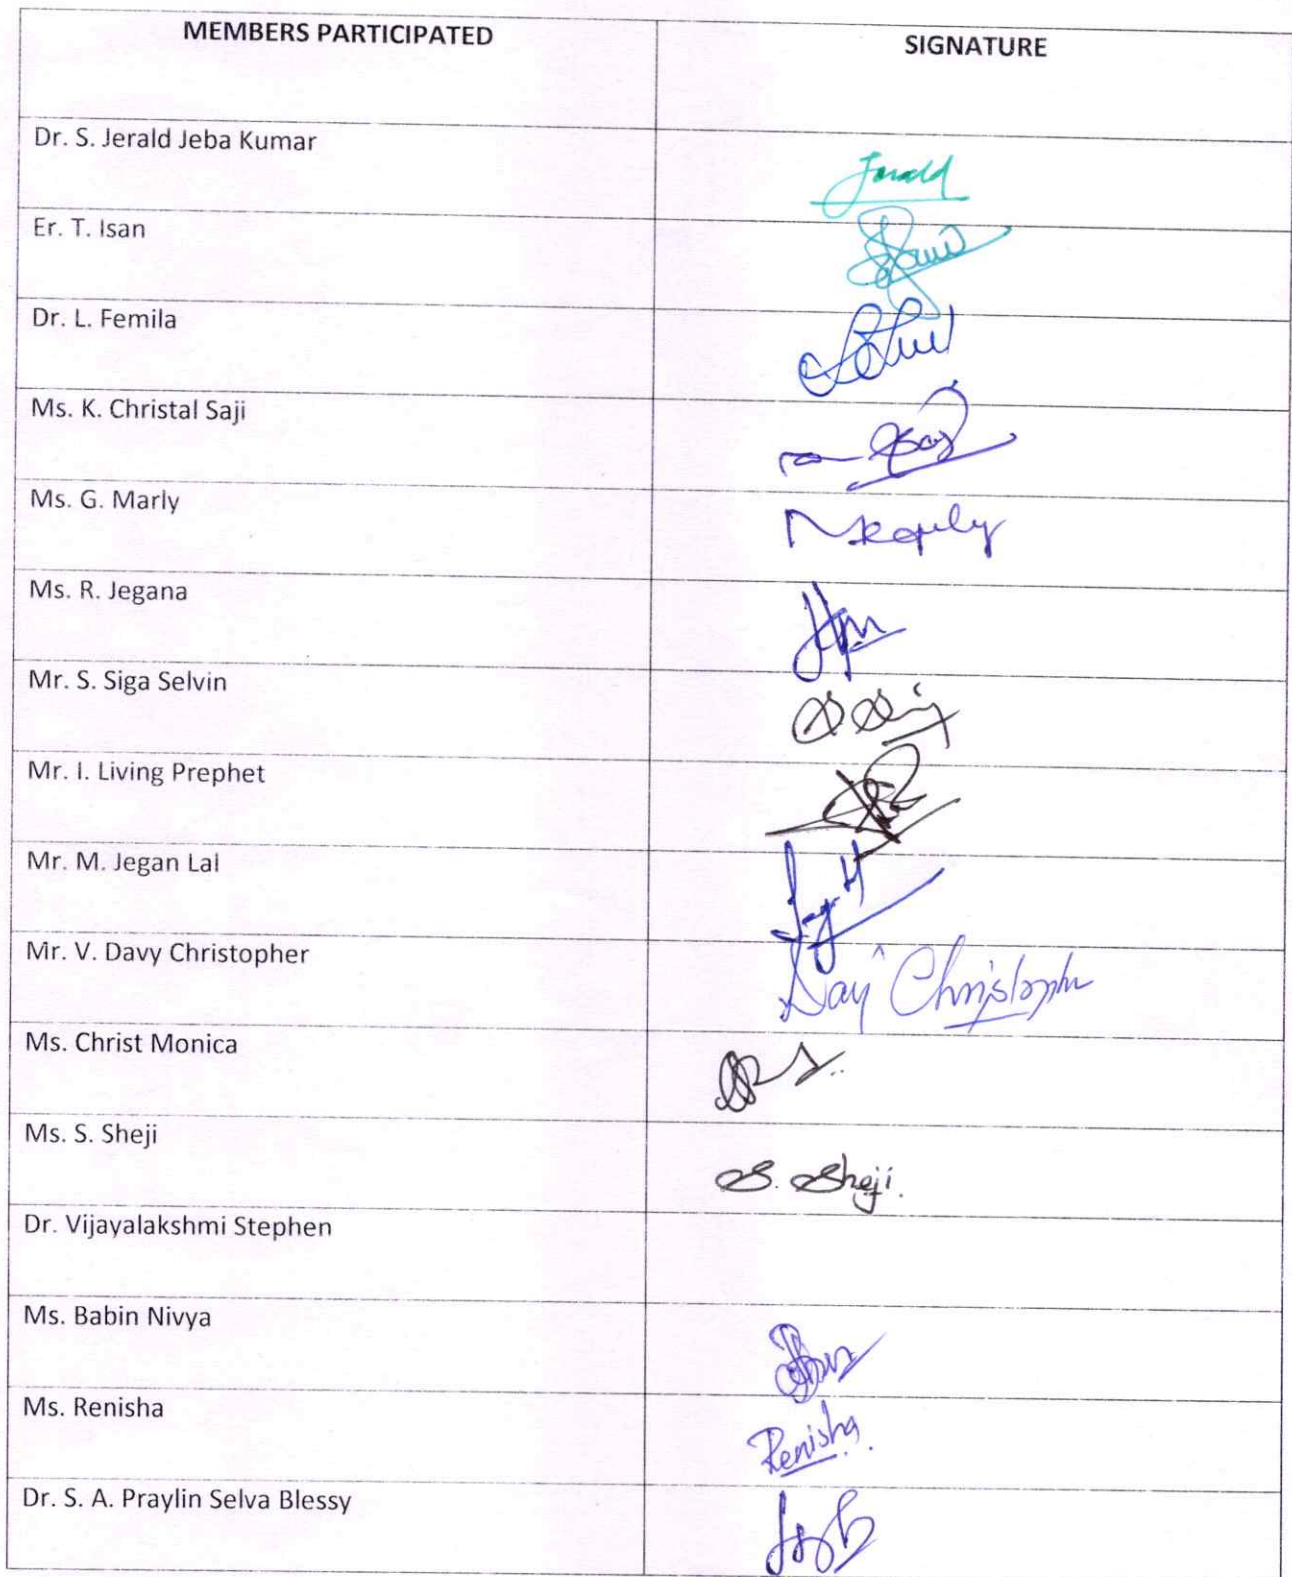 MEMBERS PARTICIPATED
SIGNATURE
Dr. S. Jerald Jeba Kumar
Jerald
Er. T. Isan
Dr. L. Femila
Ms. K. Christal Saji
Ms. G. Marly
Ms. R. Jegana
Mr. S. Siga Selvin
Mr. I. Living Prephet
Mr. M. Jegan Lal
Mr. V. Davy Christopher
Ms. Christ Monica
Ms. S. Sheji
S. Sheji.
Dr. Vijayalakshmi Stephen
Ms. Babin Nivya
Ms. Renisha
Renisha
Dr. S. A. Praylin Selva Blessy